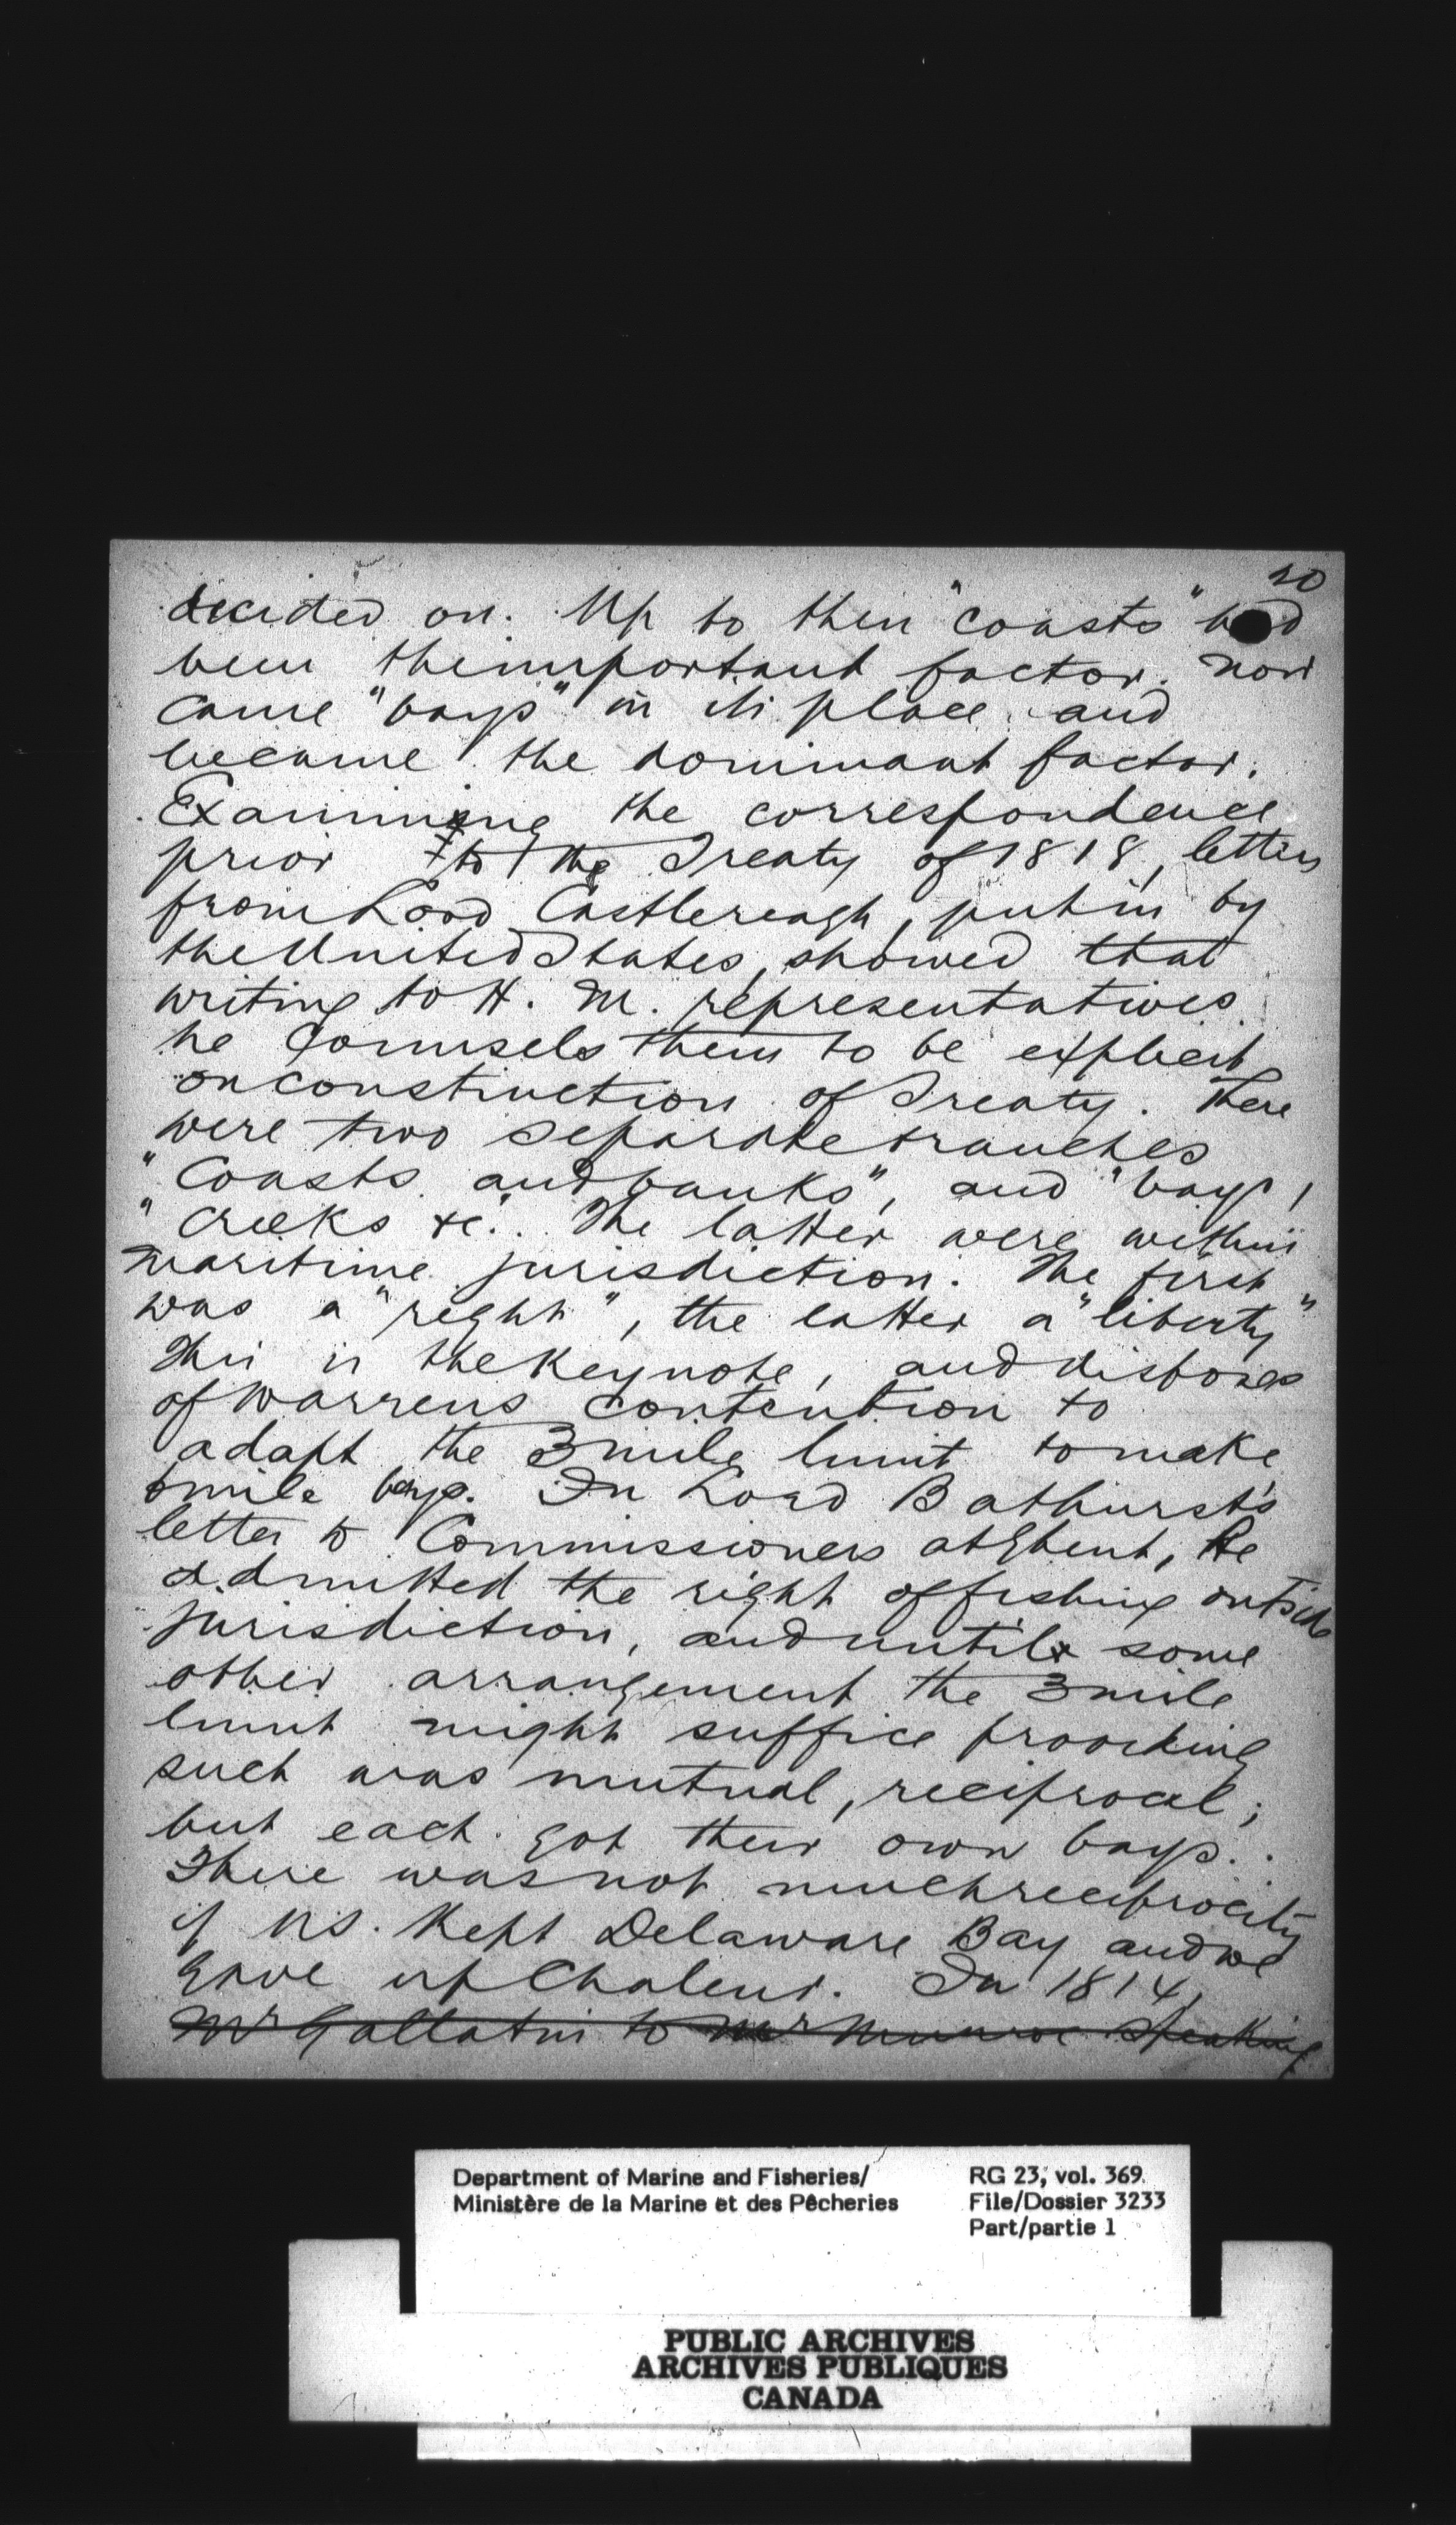 20
decided on. Up to then "coasts" had
been the important factor. Now
came "bays" in its place and
became the dominant factor.
Examining the correspondence
prior to the Treaty of 1818, letters
from Lord Castlereagh, put in by
the United States, showed that
writing to H. M. representatives
he Counsels them to be explicit
on construction of Treaty. There
were two separate branches
"Coasts and banks", and "bays,
"Creeks &c". The latter were within
maritime jurisdiction. The first
was a "right", the latter a "liberty"
This is the Keynote, and disposes
of Warrens contention to
adapt the 3 mile limit to make
mile bays. In Lord Bathurst's
letter to Commissioners at Ghent, He
admitted the right of fishing outside
jurisdiction, and until some
other arrangement the 3 mile
limit might suffice providing
such was mutual, reciprocal;
but each got their own bays.
There was not much reciprocity
if US. Kept Delaware Bay and we
gave up Chaleur. In 1814,
Mr Gallatin to Mr Munroe speaking
Department of Marine and Fisheries/
Ministère de la Marine et des Pêcheries
RG 23, vol. 369
File/Dossier 3233
Part/partie 1
PUBLIC ARCHIVES
ARCHIVES PUBLIQUES
CANADA